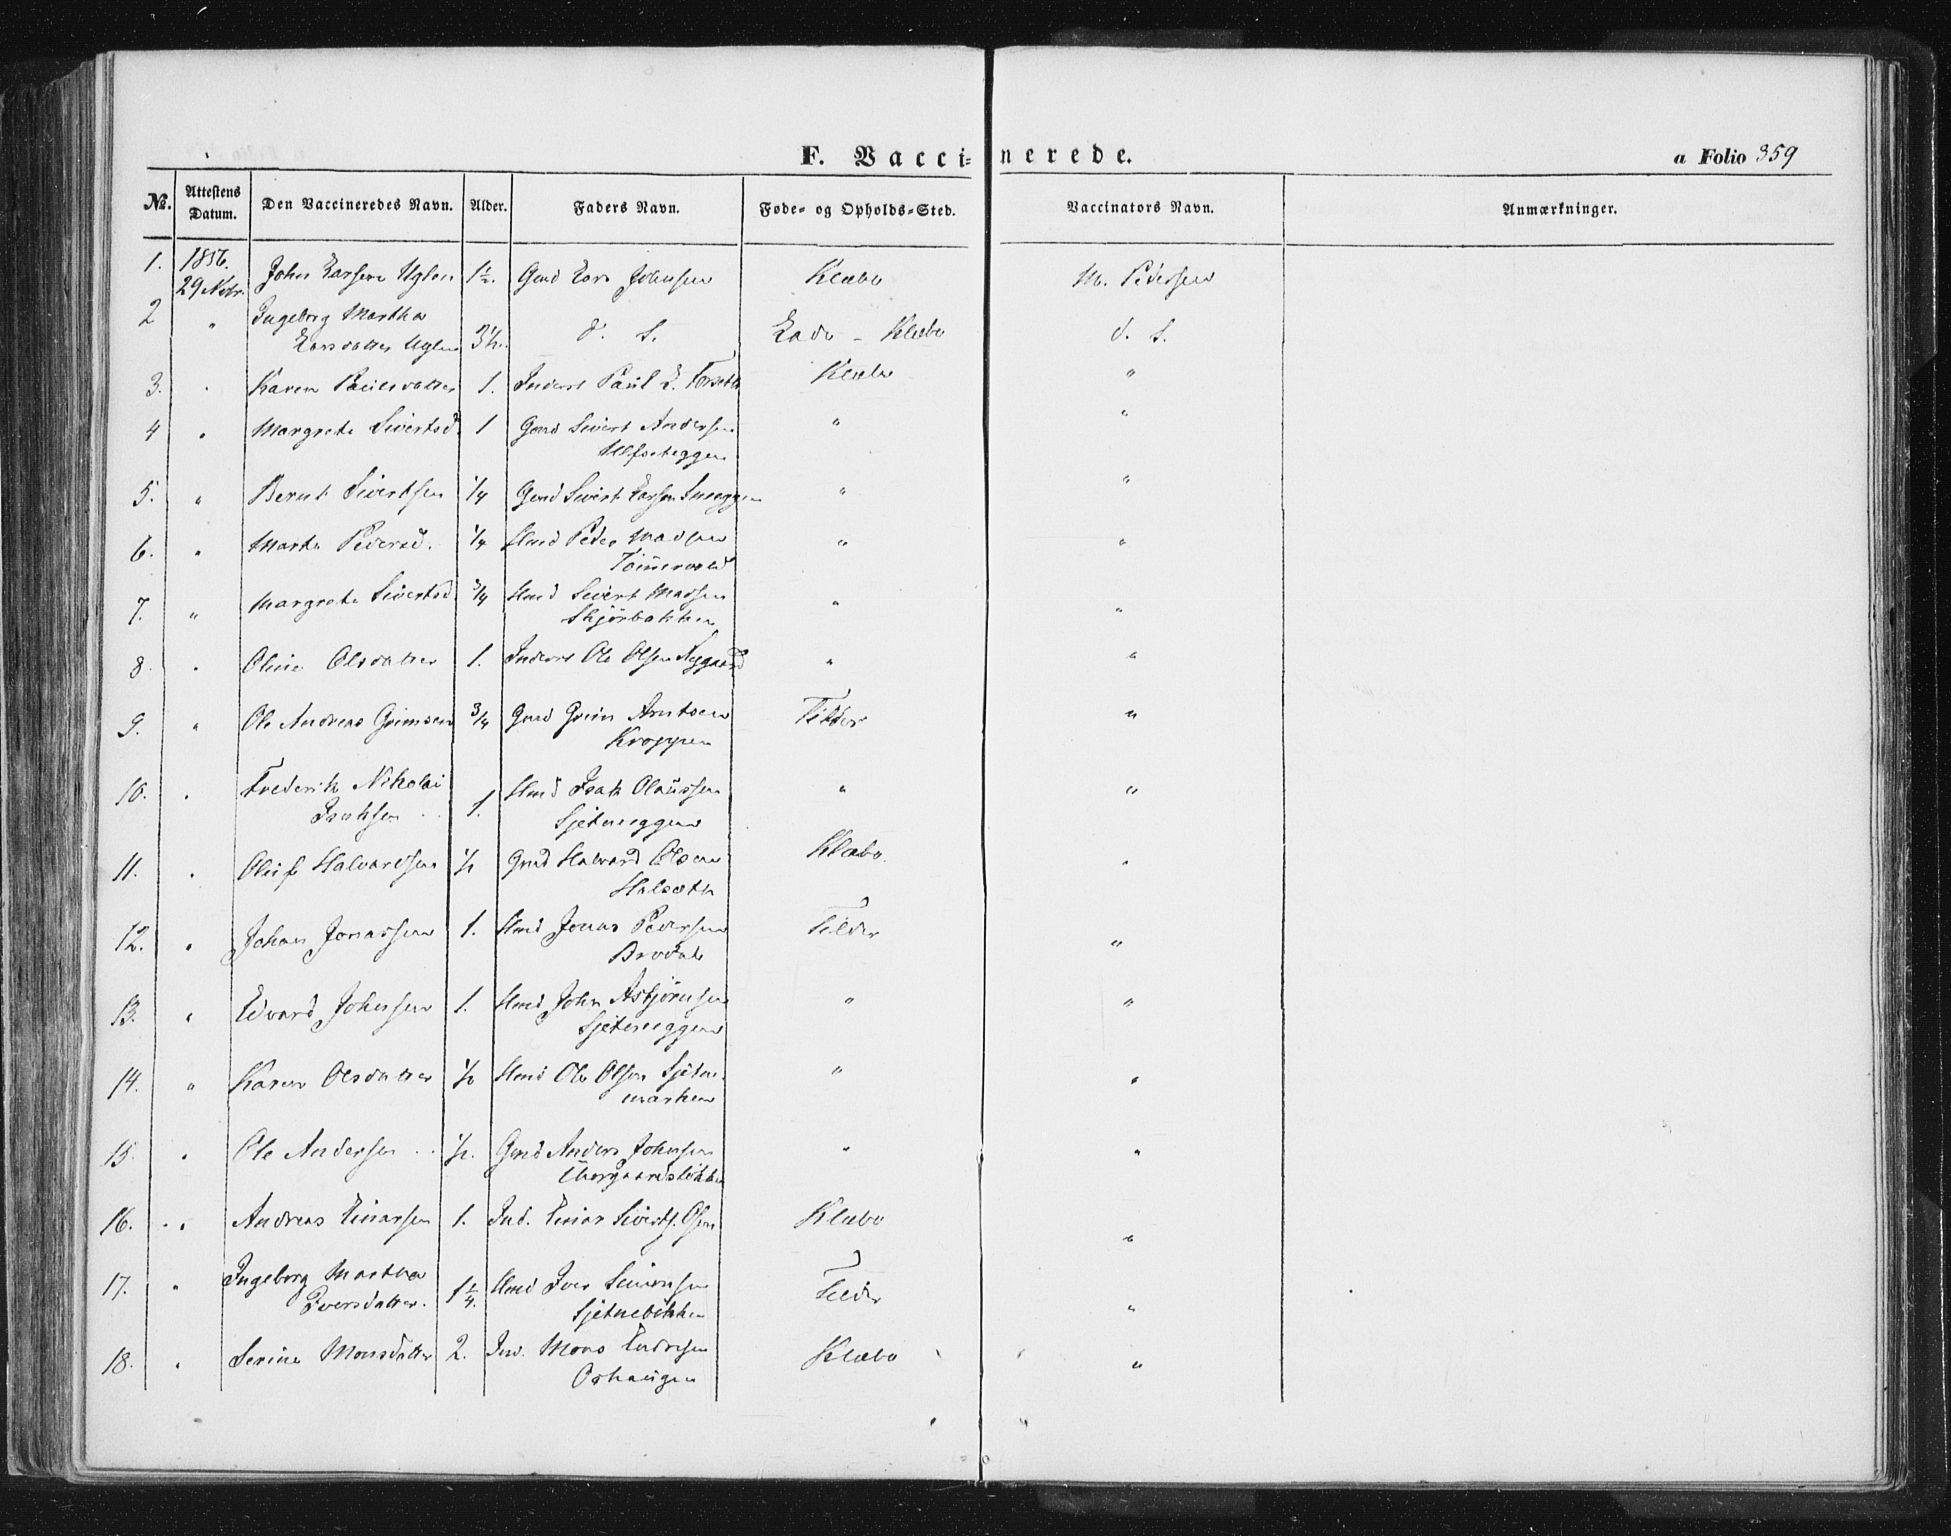 F. Vaccinerede.
a Folio 359
No. Attestens Datum. Den Vaccineredes Navn. Alder. Faders Navn. Føde- og Opholds-Sted. Vaccinators Navn. Anmærkninger.
1. 1856. 29 Nvbr. John Larsen Uglen 1½. Gmd Lars Johnsen Klæbo M. Pedersen
2 " Ingeborg Martha
Larsdatter Uglen 3½. d. S. Lade - Klæbo d. S.
3. " Karen Paulsdatter 1. Inderst Paul L. Forseth Klæbo "
4 " Margrete Sivertsd. 1 Gmd Sivert Andersen " "
Ulfseteggen
5. " Bernt Sivertsen ¼ Gmd Sivert Larsen " "
6. " Marte Pedersd. ¼ Hmd Peder Madsen " "
7. " Margrete Sivertsd ¾ Hmd Sivert Madsen " "
Skjörbakken
8. " Oline Olsdatter 1. Inderst Ole Olsen Nygaard " "
9. " Ole Andreas Grimsen ¾ Gmd Grim Arntsen Tilder "
Kroppen
10. " Frederik Nikolai
Isaksen 1. Hmd Isak Olaussen " "
Sjetneeggen
11. " Oluf Halvardsen ½ Gmd Halvard Olsen Klæbo "
Halseth
12. " Johan Jonassen 1. Hmd Jonas Pedersen Tilder "
Brødale
13. " Edvard Johnsen 1. Hmd John Asbjörnsen " "
Sjetneeggen
14. " Karen Olsdatter ½ Hmd Ole Olsen Sjetne- " "
marken
15. " Ole Andersen ½. Gmd Anders Johnsen " "
16. " Andreas Einarsen 1. Ind. Einar Siverts. Klæbo "
17. " Ingeborg Martha
Iversdatter. 1¼. Hmd Iver Simonsen Tilder "
Sjetnebakken
18. " Serine Monsdatter 2. Ind. Mons Endresen Klæbo "
Oshaugen